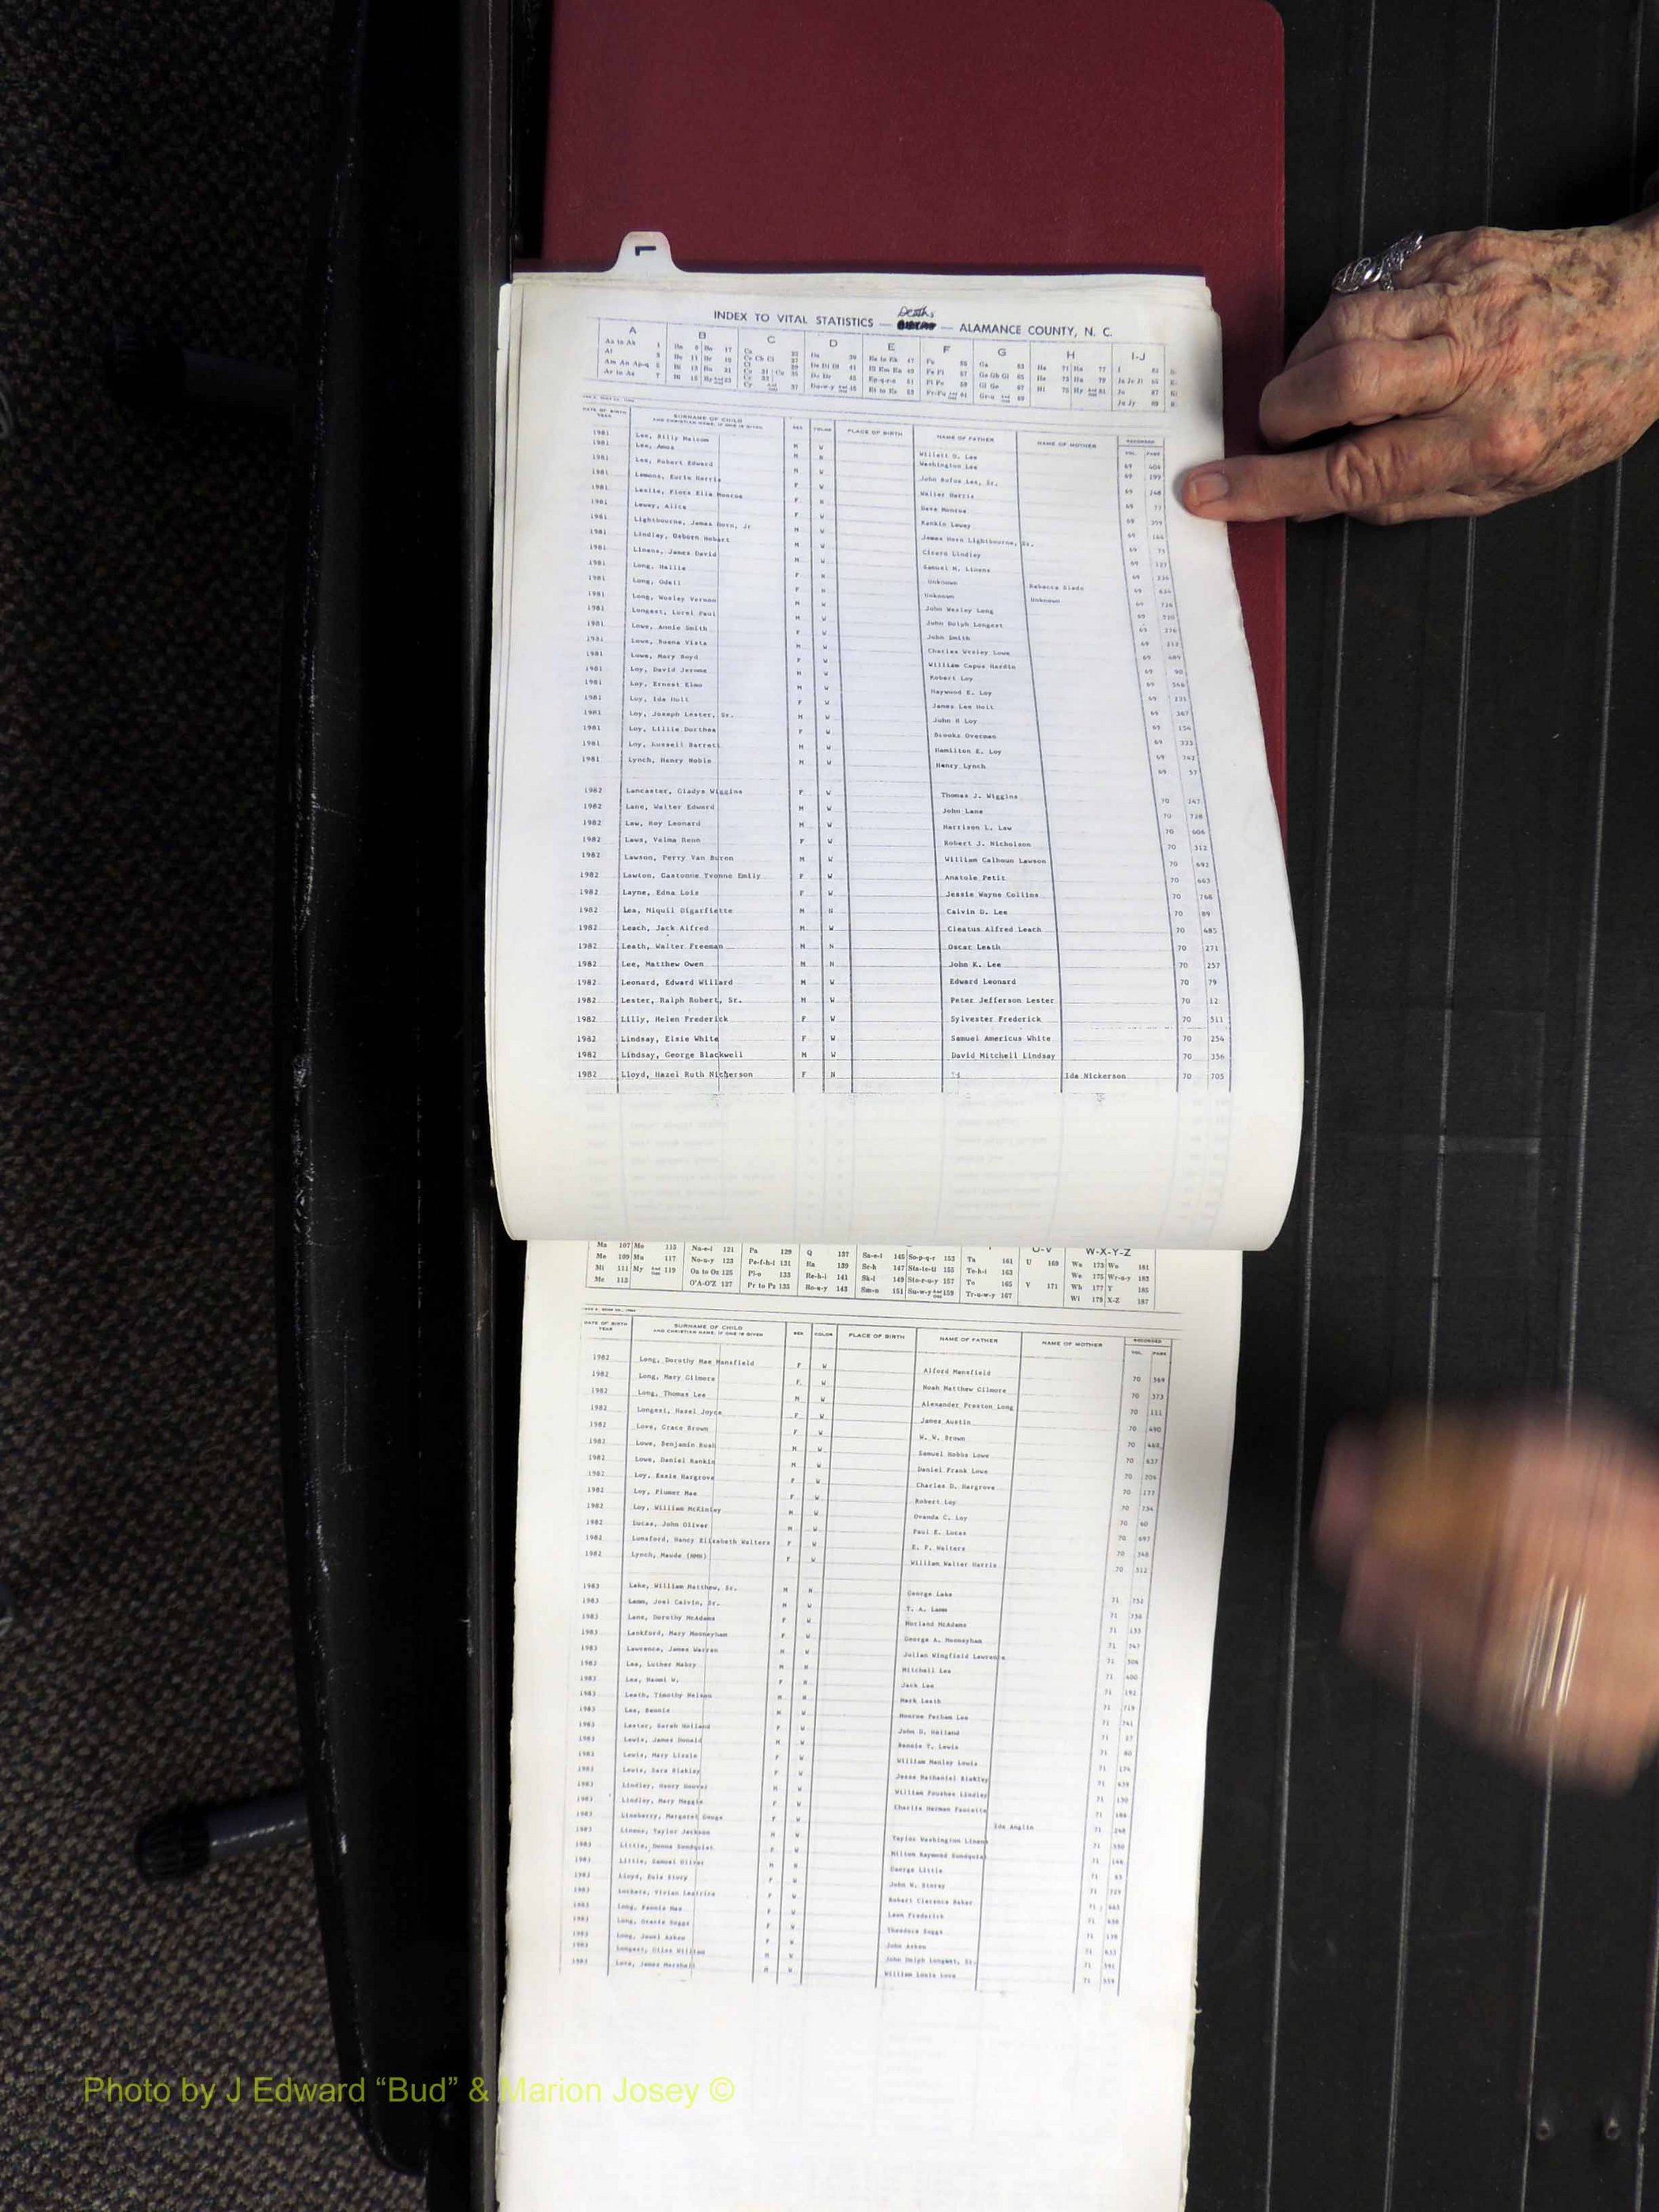 L
INDEX TO VITAL STATISTICS — Deaths — ALAMANCE COUNTY, N. C.
A B C D E F G H I-J
DATE OF BIRTH YEAR SURNAME OF CHILD AND CHRISTIAN NAME, IF ONE IS GIVEN SEX COLOR PLACE OF BIRTH NAME OF FATHER NAME OF MOTHER RECORDED VOL. PAGE
1981 Lee, Billy Malcom M W Willett D. Lee 69 404
1981 Lee, Amos M N Washington Lee 69 199
1981 Lee, Robert Edward M W John Rufus Lee, Sr. 69 248
1981 Lemons, Eurie Harris F W Walter Harris 69 77
1981 Leslie, Flora Ella Monroe F N Dave Monroe 69 359
1981 Lewey, Alice F W Rankin Lewey 69 164
1981 Lightbourne, James Horn, Jr. M W James Horn Lightbourne, Sr. 69 75
1981 Lindley, Osborn Hobart M W Cicero Lindley 69 127
1981 Linens, James David M W Samuel M. Linens 69 336
1981 Long, Hallie F N Unknown Rebecca Slade 69 634
1981 Long, Odell F N Unknown Unknown 69 726
1981 Long, Wesley Vernon M W John Wesley Long 69 310
1981 Longest, Lucel Paul M W John Dolph Longest 69 276
1981 Lowe, Annie Smith F W John Smith 69 212
1981 Lowe, Buena Vista M W Charles Wesley Lowe 69 489
1981 Lowe, Mary Boyd F W William Capus Hardin 69 90
1981 Loy, David Jerome M W Robert Loy 69 546
1981 Loy, Ernest Elmo M W Haywood E. Loy 69 231
1981 Loy, Ida Holt F W James Lee Holt 69 367
1981 Loy, Joseph Lester, Sr. M W John H Loy 69 154
1981 Loy, Lillie Dorthea F W Brooks Overman 69 333
1981 Loy, Russell Barrett M W Hamilton E. Loy 69 742
1981 Lynch, Henry Hobie M W Henry Lynch 69 57
1982 Lancaster, Gladys Wiggins F W Thomas J. Wiggins 70 247
1982 Lane, Walter Edward M W John Lane 70 728
1982 Law, Roy Leonard M W Harrison L. Law 70 606
1982 Laws, Velma Benn F W Robert J. Nicholson 70 312
1982 Lawson, Perry Van Buren M W William Calhoun Lawson 70 692
1982 Lawton, Gastonne Yvonne Emily F W Anatole Petit 70 663
1982 Layne, Edna Lois F W Jessie Wayne Collins 70 768
1982 Lea, Niquil Digarfiette M N Calvin D. Lee 70 89
1982 Leach, Jack Alfred M W Cleatus Alfred Leach 70 485
1982 Leath, Walter Freeman M N Oscar Leath 70 271
1982 Lee, Matthew Owen M N John K. Lee 70 257
1982 Leonard, Edward Willard M W Edward Leonard 70 79
1982 Lester, Ralph Robert, Sr. M W Peter Jefferson Lester 70 12
1982 Lilly, Helen Frederick F W Sylvester Frederick 70 511
1982 Lindsay, Elsie White F W Samuel Americus White 70 254
1982 Lindsay, George Blackwell M W David Mitchell Lindsay 70 356
1982 Lloyd, Hazel Ruth Nickerson F N Ida Nickerson 70 705
Ma 107 Mo 115 Na-e-i 121 Pa 129 Q 137 Sa-e-i 145 So-p-q-r 153 Ta 161 U-V W-X-Y-Z
Me 109 Mu 117 No-u-y 123 Pe-f-h-i 131 Ra 139 Sc-h 147 Sta-te-ti 155 Te-h-i 163 U 169 Wa 173 Wo 181
Mi 111 My And Odd 119 Oa to Oz 125 Pl-o 133 Re-h-i 141 Sk-l 149 Sto-r-u-y 157 To 165 We 175 Wr-u-y 183
Mc 113 O'A-O'Z 127 Pr to Pz 135 Ro-u-y 143 Sm-n 151 Su-w-y And Odd 159 Tr-u-w-y 167 V 171 Wh 177 Y 185
Wi 179 X-Z 187
DATE OF BIRTH YEAR SURNAME OF CHILD AND CHRISTIAN NAME, IF ONE IS GIVEN SEX COLOR PLACE OF BIRTH NAME OF FATHER NAME OF MOTHER RECORDED VOL. PAGE
1982 Long, Dorothy Mae Mansfield F W Alford Mansfield 70 369
1982 Long, Mary Gilmore F W Noah Matthew Gilmore 70 373
1982 Long, Thomas Lee M W Alexander Preston Long 70 111
1982 Longest, Hazel Joyce F W James Austin 70 490
1982 Love, Grace Brown F W W. W. Brown 70 468
1982 Lowe, Benjamin Rush M W Samuel Hobbs Lowe 70 637
1982 Lowe, Daniel Rankin M W Daniel Frank Lowe 70 204
1982 Loy, Essie Hargrove F W Charles D. Hargrove 70 177
1982 Loy, Plumer Mae F W Robert Loy 70 734
1982 Loy, William McKinley M W Ovanda C. Loy 70 60
1982 Lucas, John Oliver M W Paul E. Lucas 70 697
1982 Lunsford, Nancy Elizabeth Walters F W E. P. Walters 70 348
1982 Lynch, Maude (NMN) F W William Walter Harris 70 512
1983 Lake, William Matthew, Sr. M N George Lake 71 752
1983 Lamm, Joel Calvin, Sr. M W T. A. Lamm 71 758
1983 Lane, Dorothy McAdams F W Morland McAdams 71 155
1983 Lankford, Mary Mooneyham F W George A. Mooneyham 71 747
1983 Lawrence, James Warren M W Julian Wingfield Lawrence 71 306
1983 Lea, Luther Mabry M N Mitchell Lea 71 400
1983 Lea, Naomi W. F N Jack Lee 71 192
1983 Leath, Timothy Nelson M N Mark Leath 71 719
1983 Lee, Bennie M W Monroe Perham Lee 71 741
1983 Lester, Sarah Holland F W John D. Holland 71 37
1983 Lewis, James Donald M W Bennie T. Lewis 71 80
1983 Lewis, Mary Lizzie F W William Manley Lewis 71 174
1983 Lewis, Sara Blakley F W Jesse Nathaniel Blakley 71 439
1983 Lindley, Henry Hoover M W William Poushee Lindley 71 130
1983 Lindley, Mary Maggie F W Charlie Herman Faucette 71 186
1983 Lineberry, Margaret Gouge F W Ida Anglin 71 248
1983 Linens, Taylor Jackson M W Taylor Washington Linens 71
1983 Little, Donna Sundquist F W Milton Raymond Sundquist 71
1983 Little, Samuel Oliver M N George Little 71
1983 Lloyd, Eula Story F W John W. Storey 71
1983 Lockets, Vivian Leatrice F W Robert Clarence Baker 71
1983 Long, Fannie Mae F W Leon Frederick 71
1983 Long, Gracie Suggs F W Theodore Suggs 71
1983 Long, Jewel Askew F W John Askew 71
1983 Longest, Giles William M W John Dolph Longest, Sr. 71
1983 Love, James Marshall M W William Louis Love 71
Photo by J Edward “Bud” & Marion Josey ©